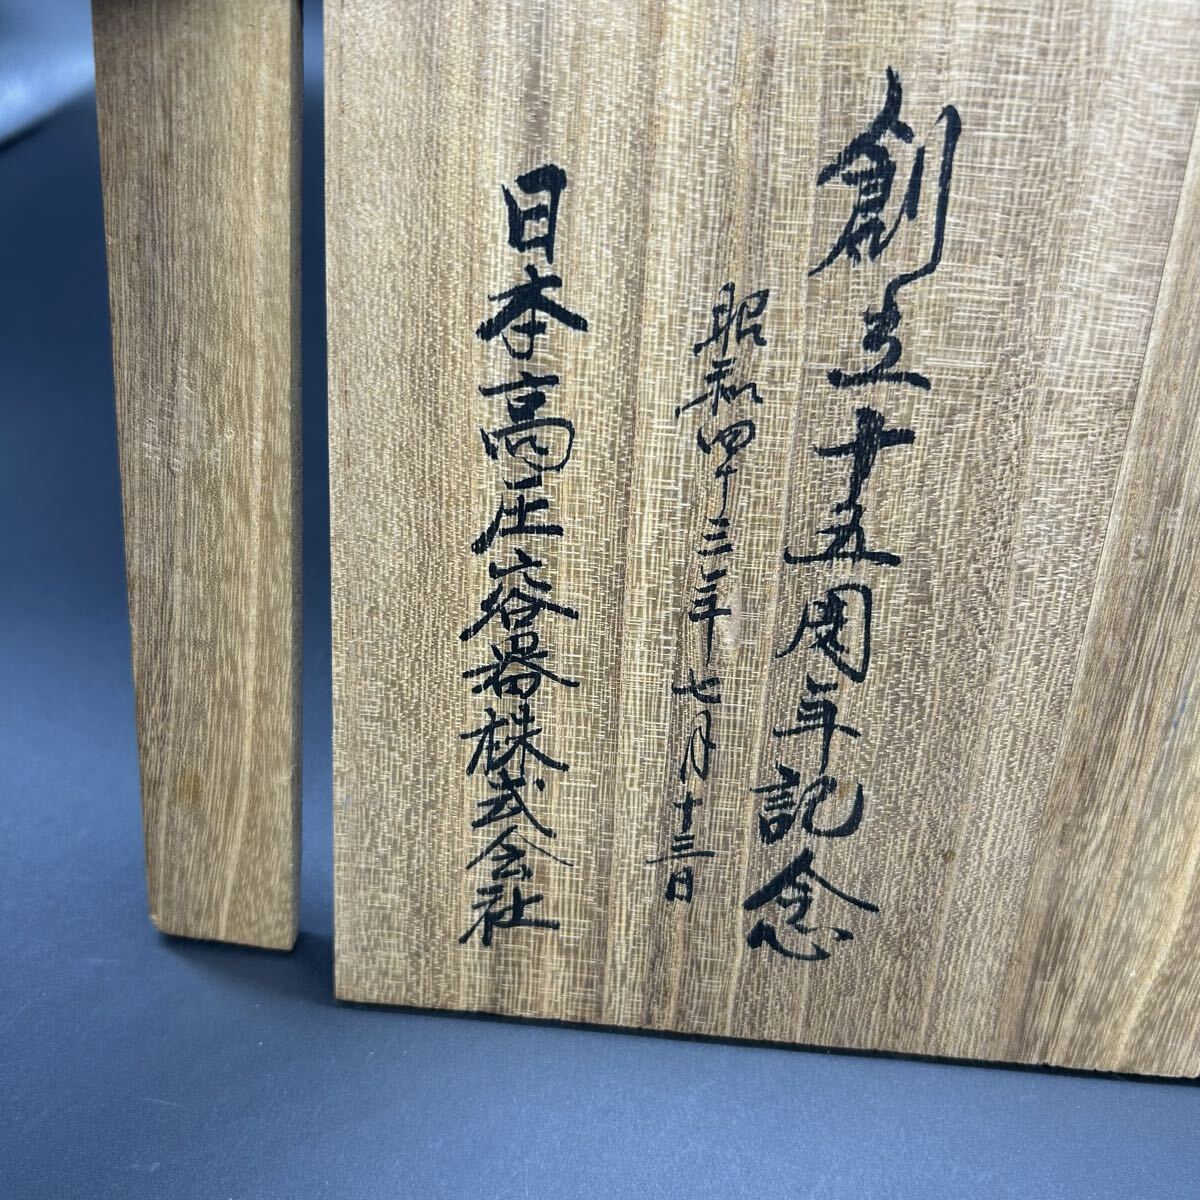 創立十五周年記念
昭和四十三年七月十三日
日本高圧容器株式会社